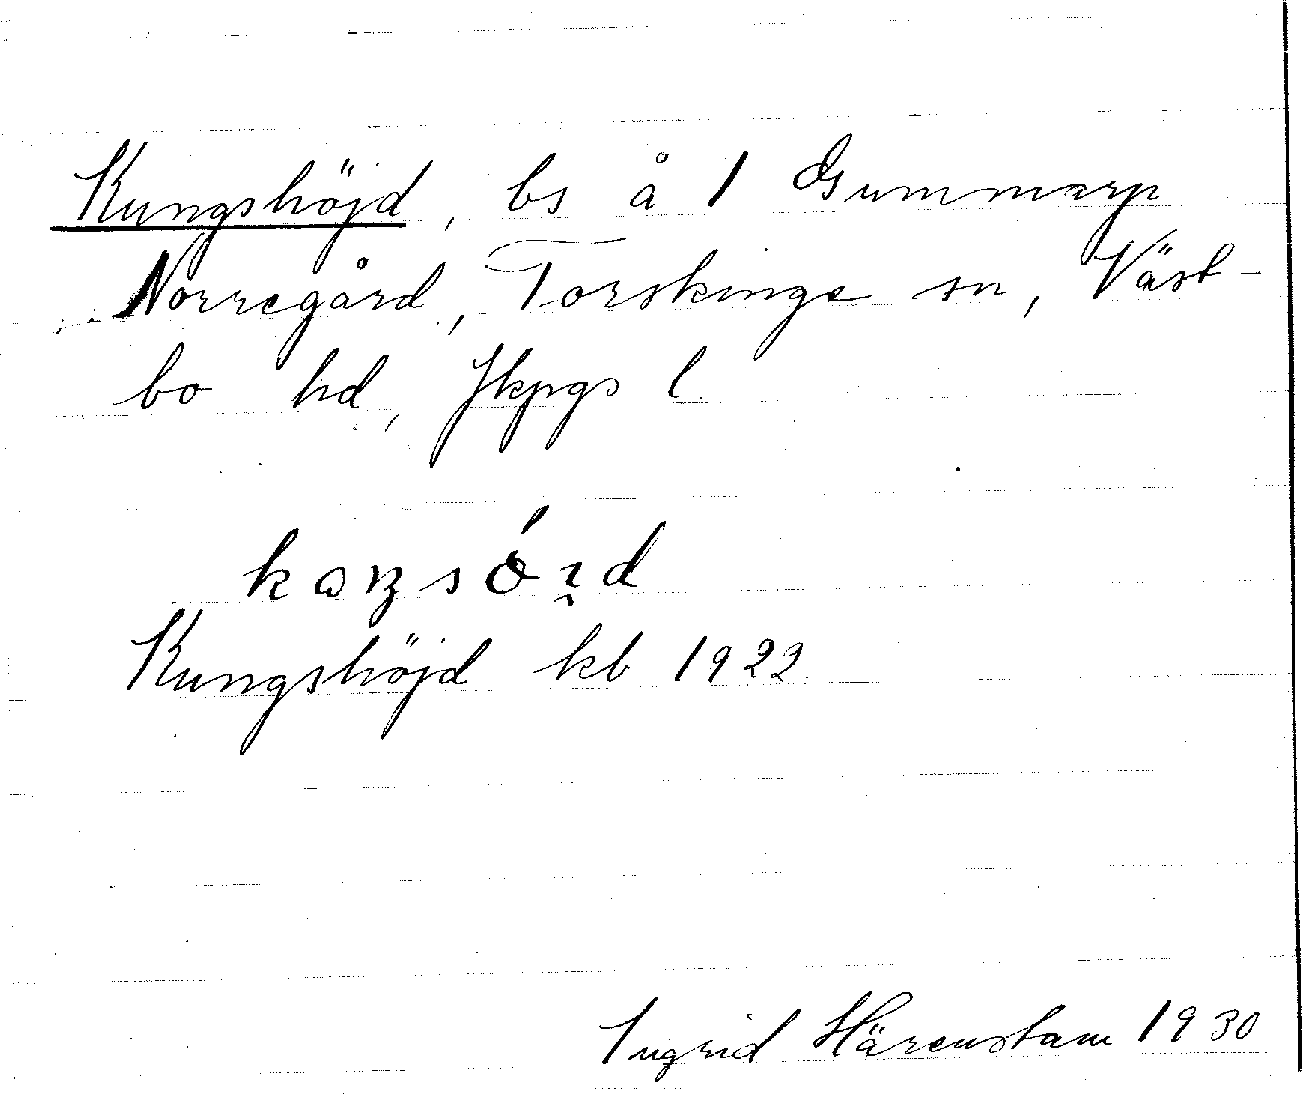 Kungshöjd, bs å 1 Gummarp
Norregård, Torskinge sn, Väst-
bo hd, Jkpgs l.
kaŋsó̀ꞽd
Kungshöjd kb 1922
Ingrid Härenstam 1930